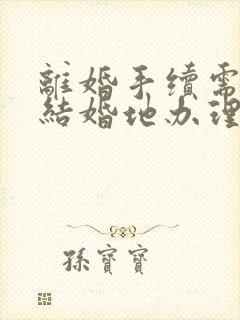 離婚手續需
結婚地办理
孫寶寶